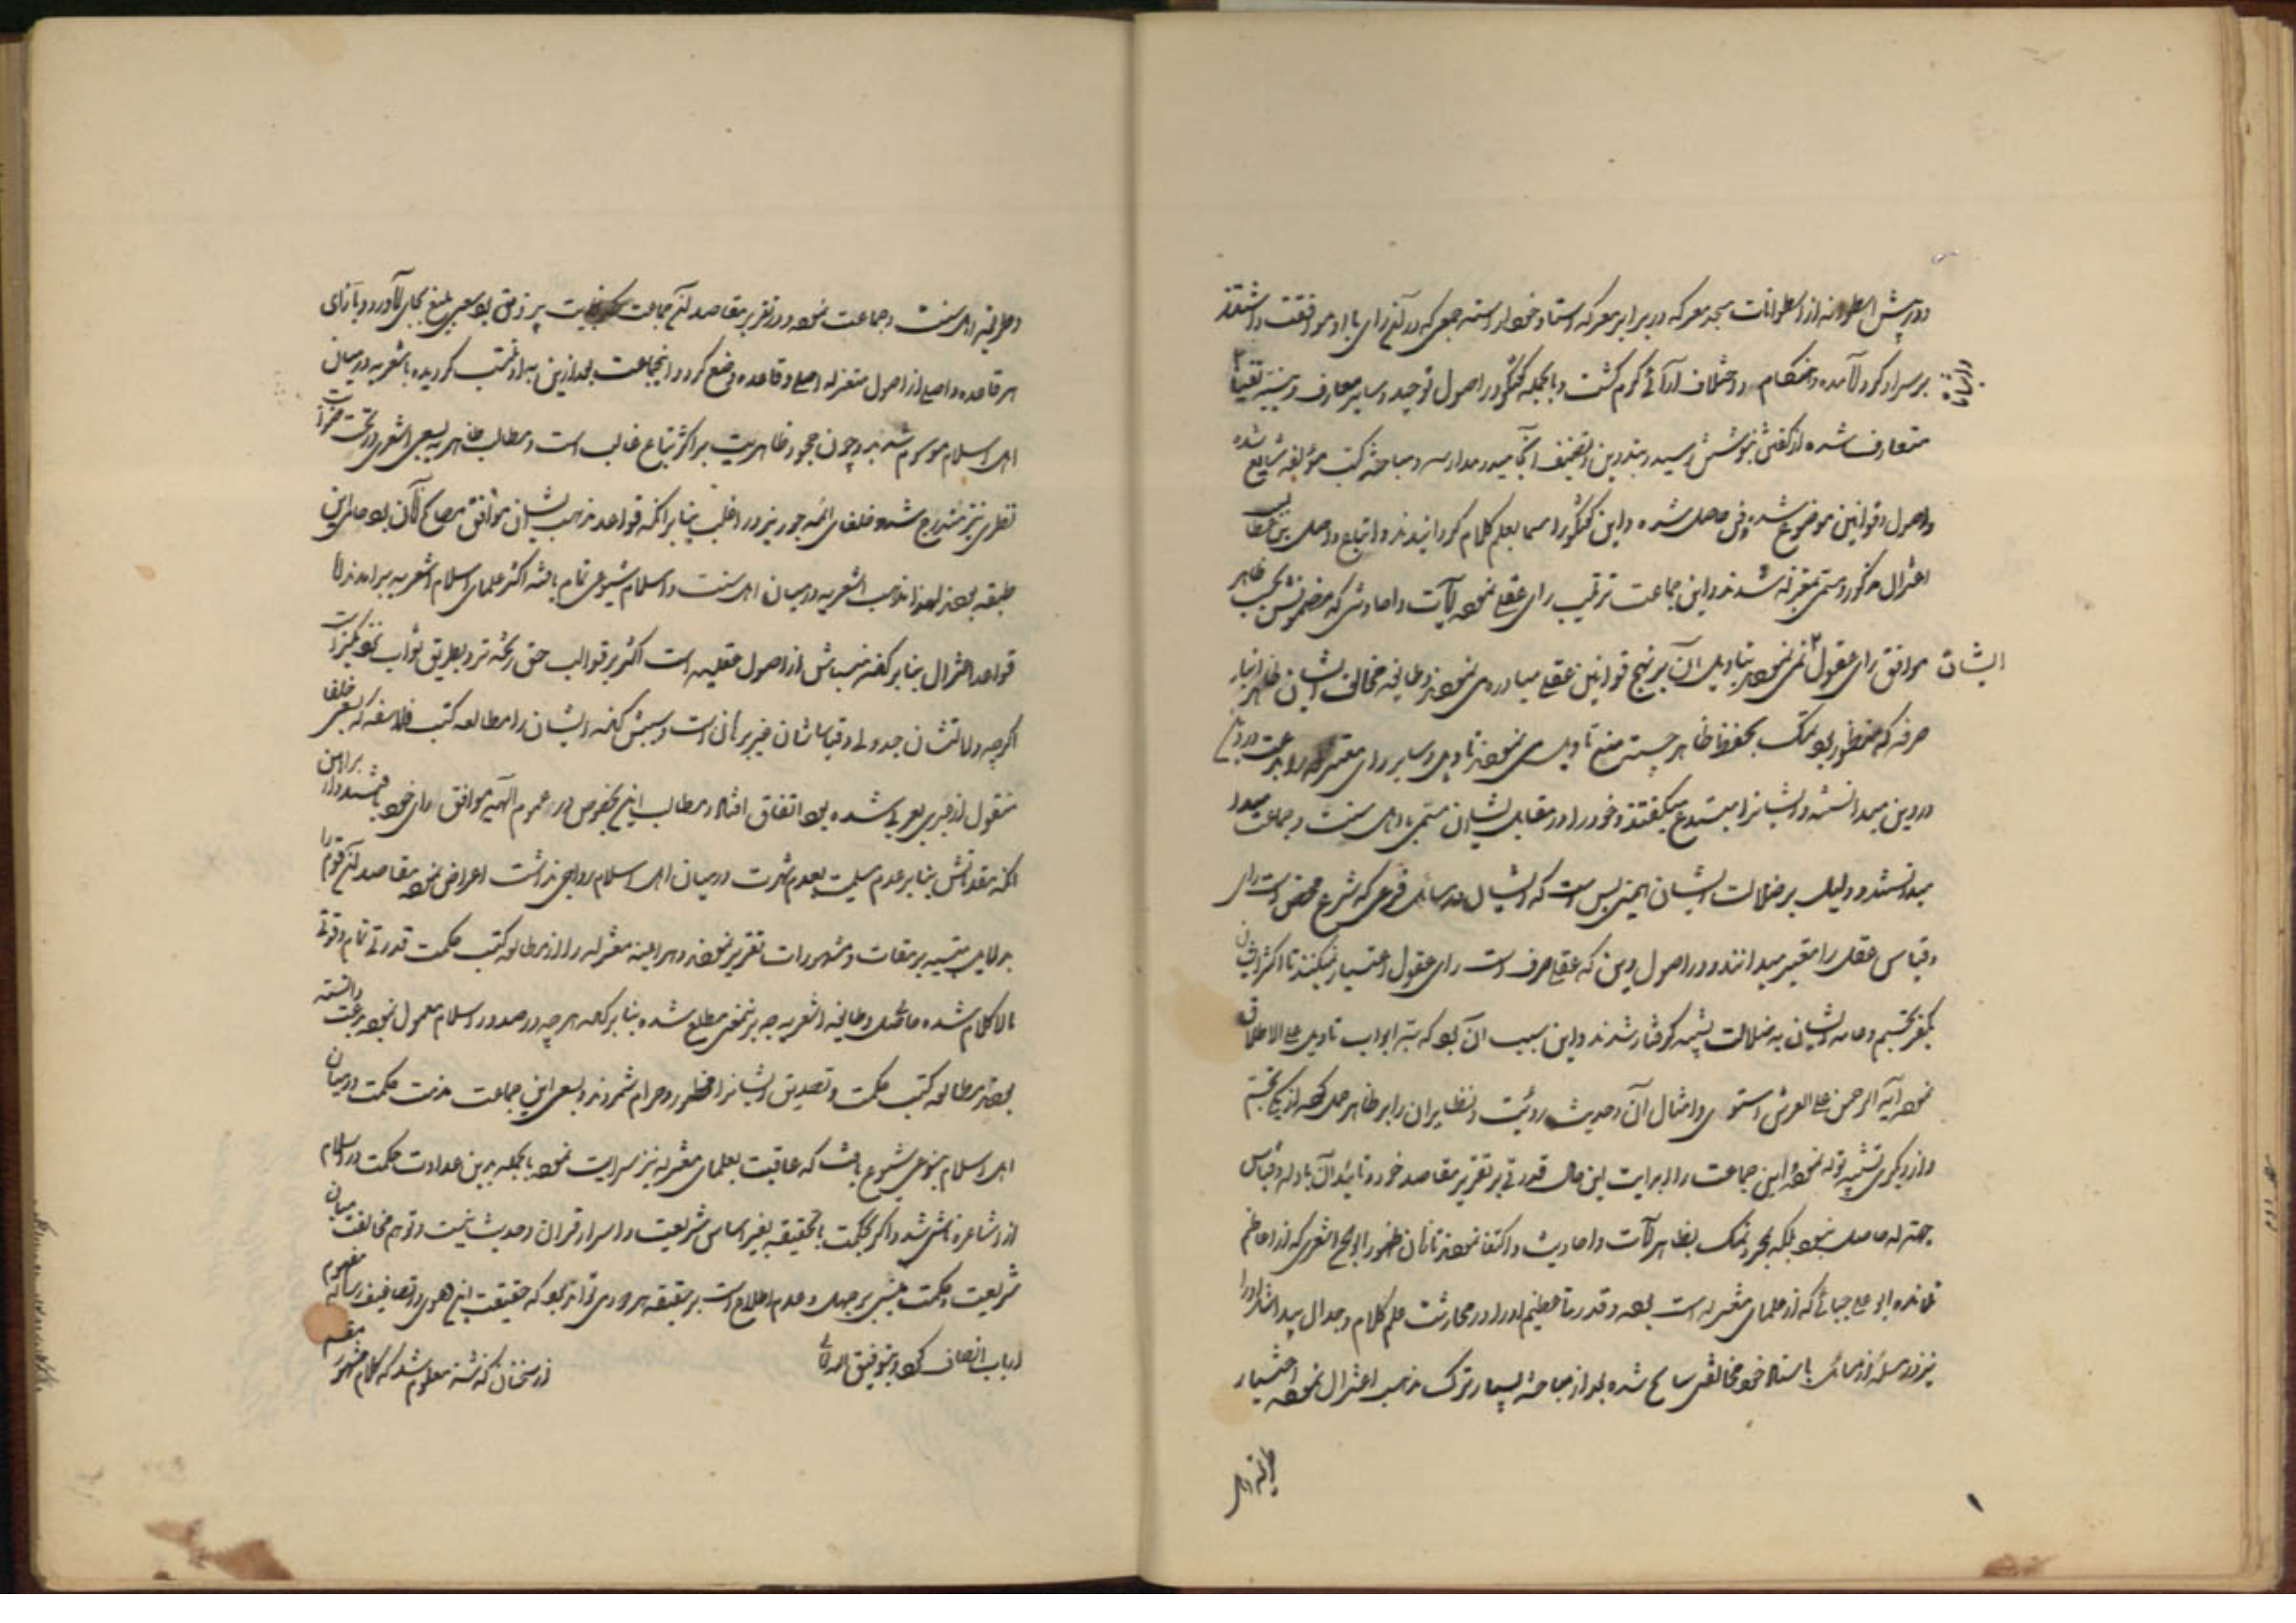 و در پیش اسطوانه از اسطوانات مسجد معرکه در برابر معرکه استاد خود آراسته جمعی که در آنچ رای با او موافقت داشتند
بر سر او گرد آمده و هنگام رد و خلاف آرائی گرم گشت و بالجمله گفتگو در اصول توحید و سایر معارف دینیه
متعارف شده از گفتن بنوشتن رسید و بتدوین و تصنیف انجامید و مدارسه و مباحثه کتب مؤلفه شایع شده
و اصول و قوانین موضوع شده و فنی حاصل شده و این گفتگو را مسما بعلم کلام گردانیدند و اتباع واصل
اعتزال مذکور و مسمی بمعتزله شدند و این جماعت ترغیب رای عقلی نموده آیات و احادیثی که مضمونش بحسب ظاهر
ایشان موافق رای عقول نمی نمود بتاویل آن بر نهج قوانین عقلی مبادره می نمودند و طایفه مخالف ایشان
صرفه که منظور بود تمسک بحفظ ظاهر جسته منع تاویل می نمودند تاویل و سایر رای معتزله را بدعت
در دین میدانسته و ایشانرا مبتدع میگفتند و خود را در مقابل ایشان مسمی باهل سنت و جماعت
میدانستند و دلیل بر ضلالت ایشان همین بس است که ایشان در مسائل فروعی که شرع محض است رای
و قیاس عقل را معتبر میدانند و در اصول دین که عقلی صرف است رای عقول اعتبار نمیکنند تا اکثر ایشان
بکفر تجسم و عامه ایشان به ضلالت تشبیه گرفتار شدند و این سبب آن بود که سد ابواب تاویل علی الاطلاق
نموده آیه الرحمن علی العرش استوی و امثال آن و حدیث رؤیت و نظایر آن را بر ظاهر حمل کرده از یکی تجسم
و از دیگری تشبیه تولد نموده و این جماعت را در بدایت این حال قدرتی بر تقریر مقاصد خود و تائید آن بادله و قیاس
حاصل نبود بلکه بمجرد تمسک بظاهر آیات و احادیث اکتفا نمودند تا زمان ظهور ابو الحسن اشعری که از اعاظم
تلامذه ابو علی جبائی که از علمای معتزله است بوده و قدرتی عظیم او را در ممارست علم کلام و جدال پیدا شد او را
نیز در مسئله از مسائل با استاد خود مخالفتی سانح شده بعد از مباحثه بسیار ترک مذهب اعتزال نموده اختیار
طریقه اهل
و طریقه اهل سنت و جماعت نموده و در تقریر مقاصد آنجماعت که بغایت بی رونق بود سعی بلیغ بجای آورد و بازای
هر قاعده و اصلی از اصول معتزله اصلی و قاعده وضع کرد و انجماعت بعد ازین به او منتسب گردیده باشعریه در میان
اهل اسلام موسوم شدند و چون جمود ظاهریت بر اکثر طباع غالب است و مطالب ظاهریه بسعی اشعری در تحت
نظری نیز مندرج شده خلفای ائمه جور نیز در اغلب بنا بر آنکه قواعد مذهب ایشان موافق مصالح آن بود حامی این
طبقه بودند لهذا مذهب اشعریه در میان اهل سنت و اسلام شیوعی تمام یافته اکثر علمای اسلام اشعریه برآمدند اما
قواعد اعتزال بنا بر آنکه مبناش از اصول عقلیه است اکثر بر قوالب حق ریخته تر و بطریق ثواب نزدیکتر است
اگرچه دلالتشان جدولی و قیاساتشان غیر برهان است و سببش آنکه ایشان را مطالعه کتب فلاسفه که بسعی خلفا
منقول از عبری بعربی شده بود اتفاق افتاد و مطالب این بخصوص در عموم الهیه موافق رای خود یافتند و از براهین
آنکه مقدماتش بنا بر عدم مسلمیت و عدم شهرت در میان اهل اسلام رواجی نداشت اعراض نموده مقاصد آنقوم را
بدلایل مبتنیه بر مسلمات و مشهورات تقریر نمودند و هر آینه معتزله را از مطالعه کتب حکمت قدرتی تمام و قوتی
بالا کلام شده حاصل و طایفه اشعریه چه بر نمعنی مطلع شده بنا بر آنکه هر چه در صدر اسلام معمول نبود بدعت دانسته
بودند مطالعه کتب حکمت و تصدیق ایشانرا محظور و حرام شمردند و بسعی این جماعت مذمت حکمت در میان
اهل اسلام بنوعی شیوع یافت که عاقبت بعلمای معتزله نیز سرایت نمود بالجمله برین عداوت حکمت در اسلام
از اشاعره ناشی شد و الا حکمت بالحقیقه بغیر اساس شریعت و اسرار قرآن و حدیث نیست و توهم مخالفت میان
شریعت و حکمت مبنی بر جهل و عدم اطلاع است بر حقیقه هر دو و می تواند بود که حقیقت این دعوی در تصانیف رساله مفهوم
ارباب انصاف گردد بتوفیق الله تعالی از سخنان گذشته معلوم شد که کلام مشهور